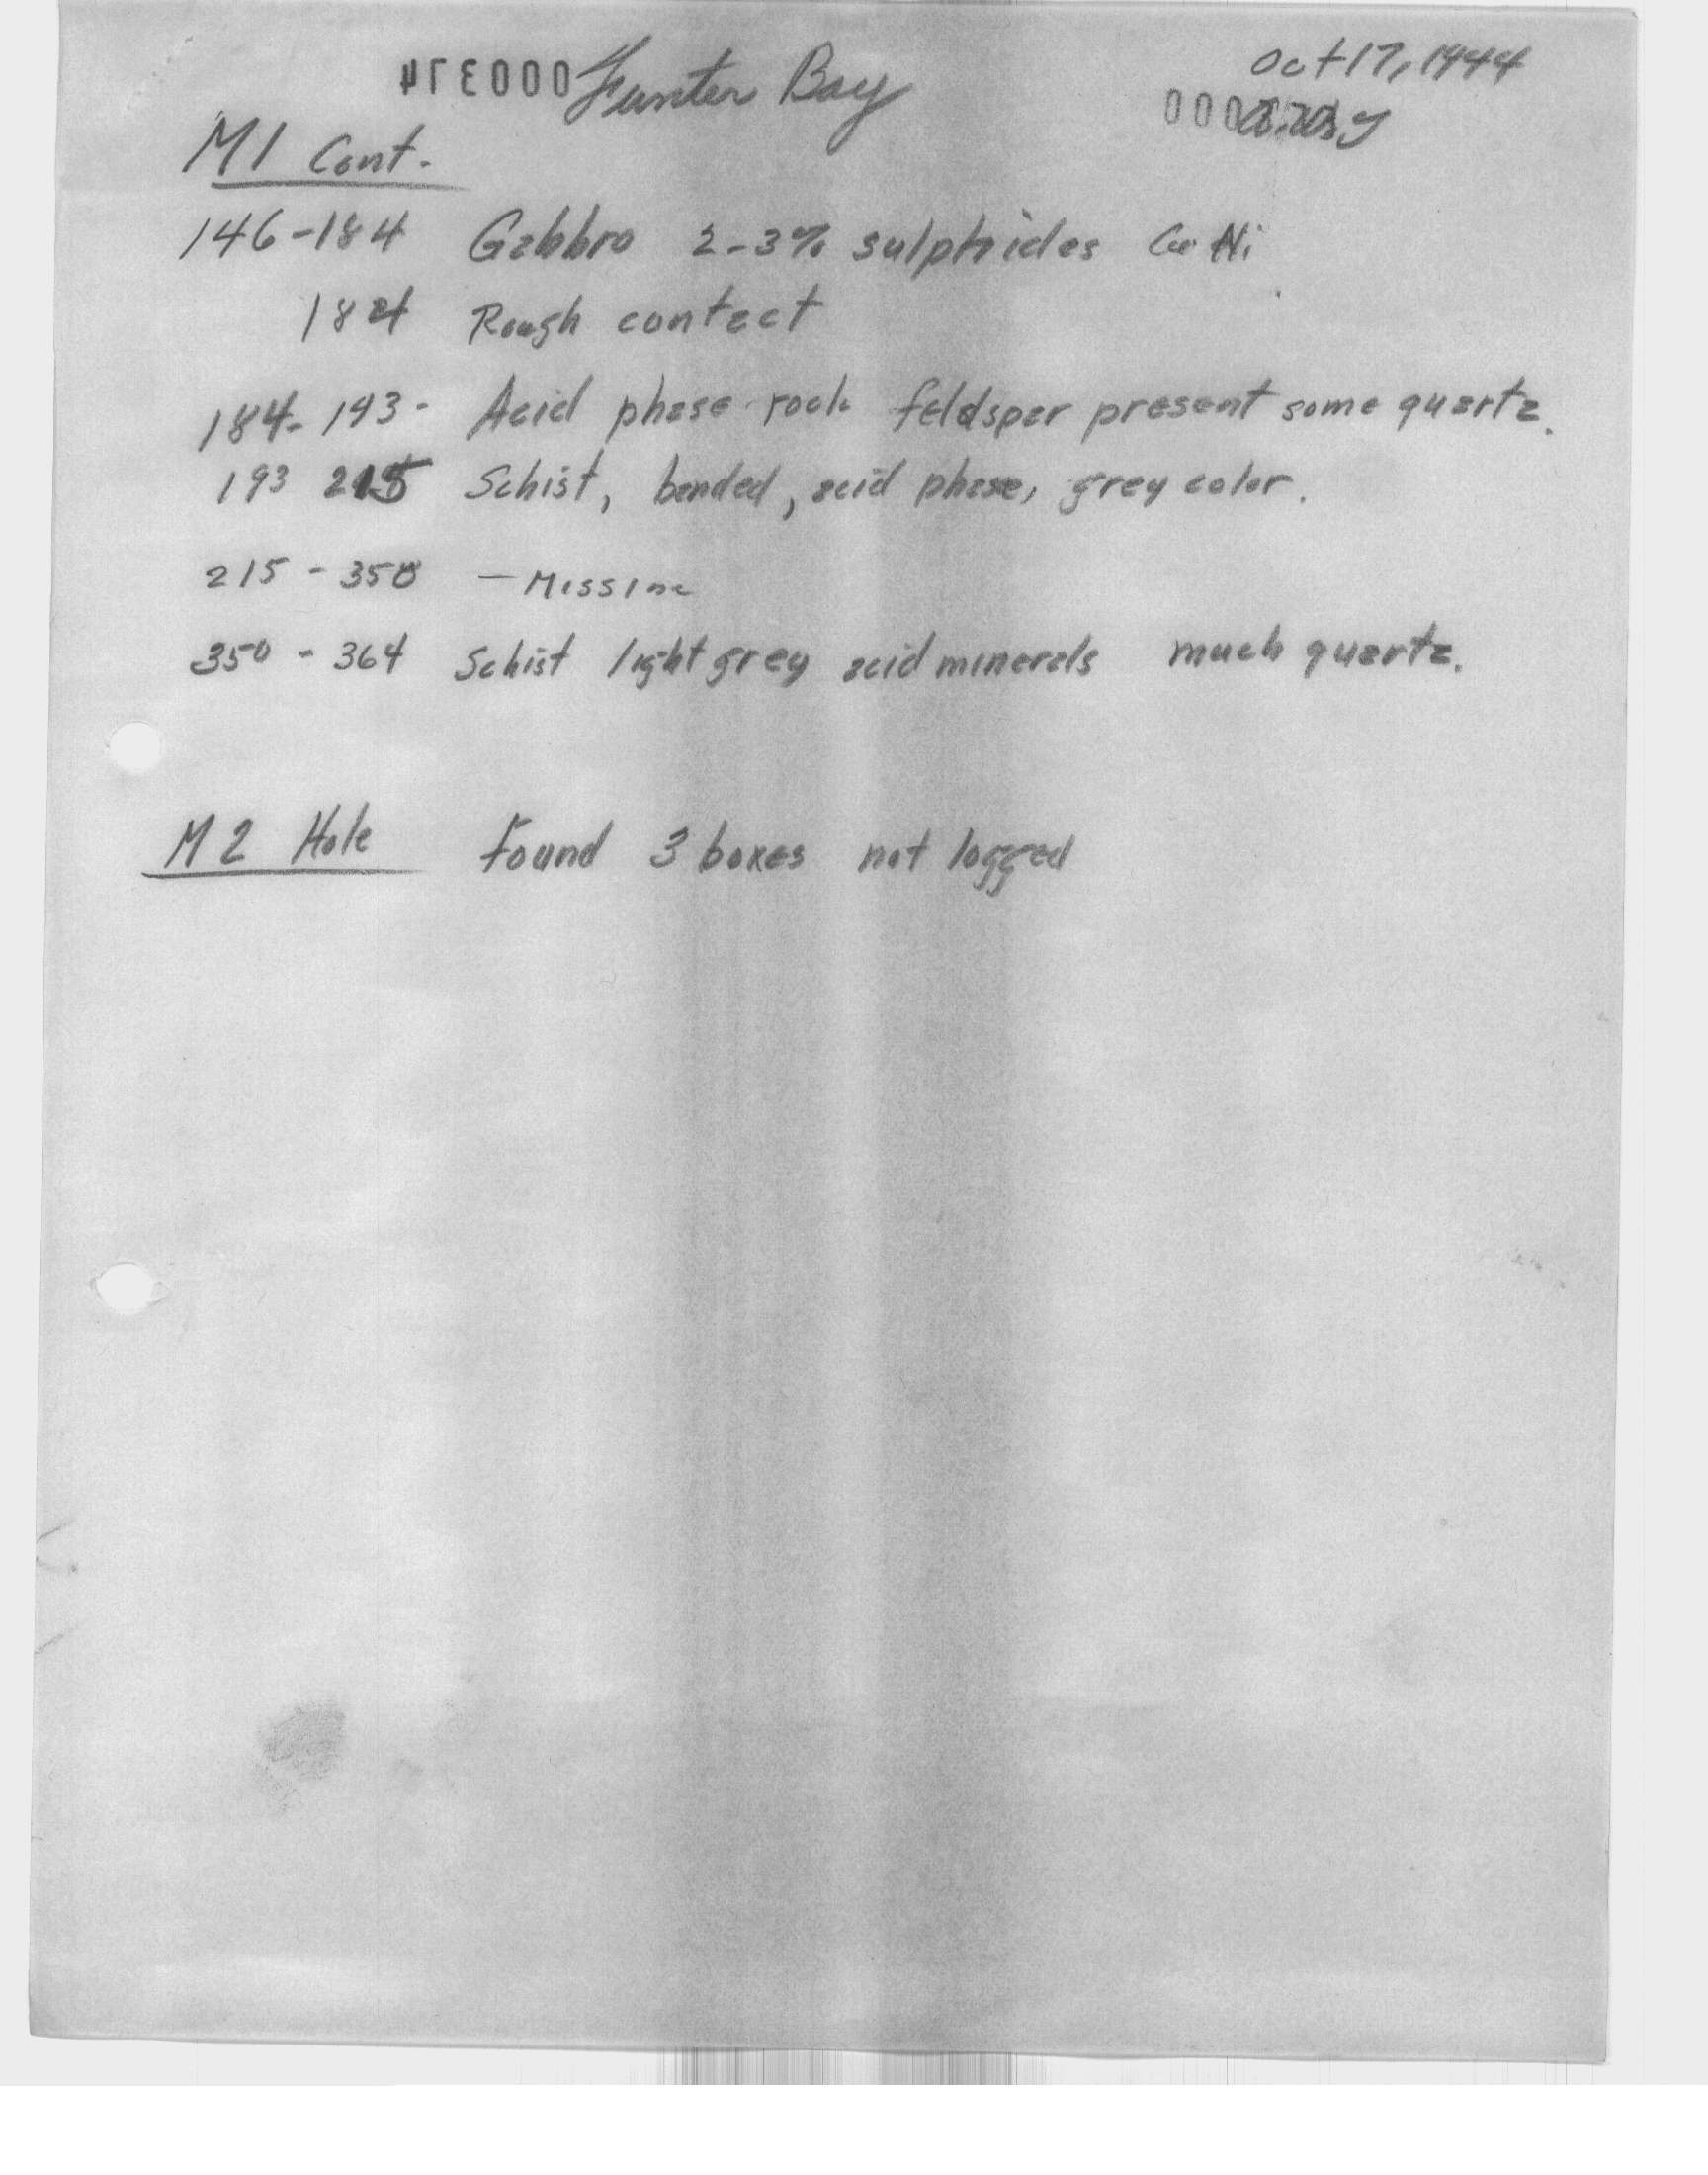 000314 Funter Bay Oct 17, 1944
000
M1 Cont.
146-184 Gabbro 2-3% sulphides Cu Ni
184 Rough contact
184-193- Acid phase rock feldspar present some quartz.
193 215 Schist, banded, acid phase, grey color.
215-350 - Missing
350-364 Schist light grey acid minerals much quartz.
M2 Hole Found 3 boxes not logged